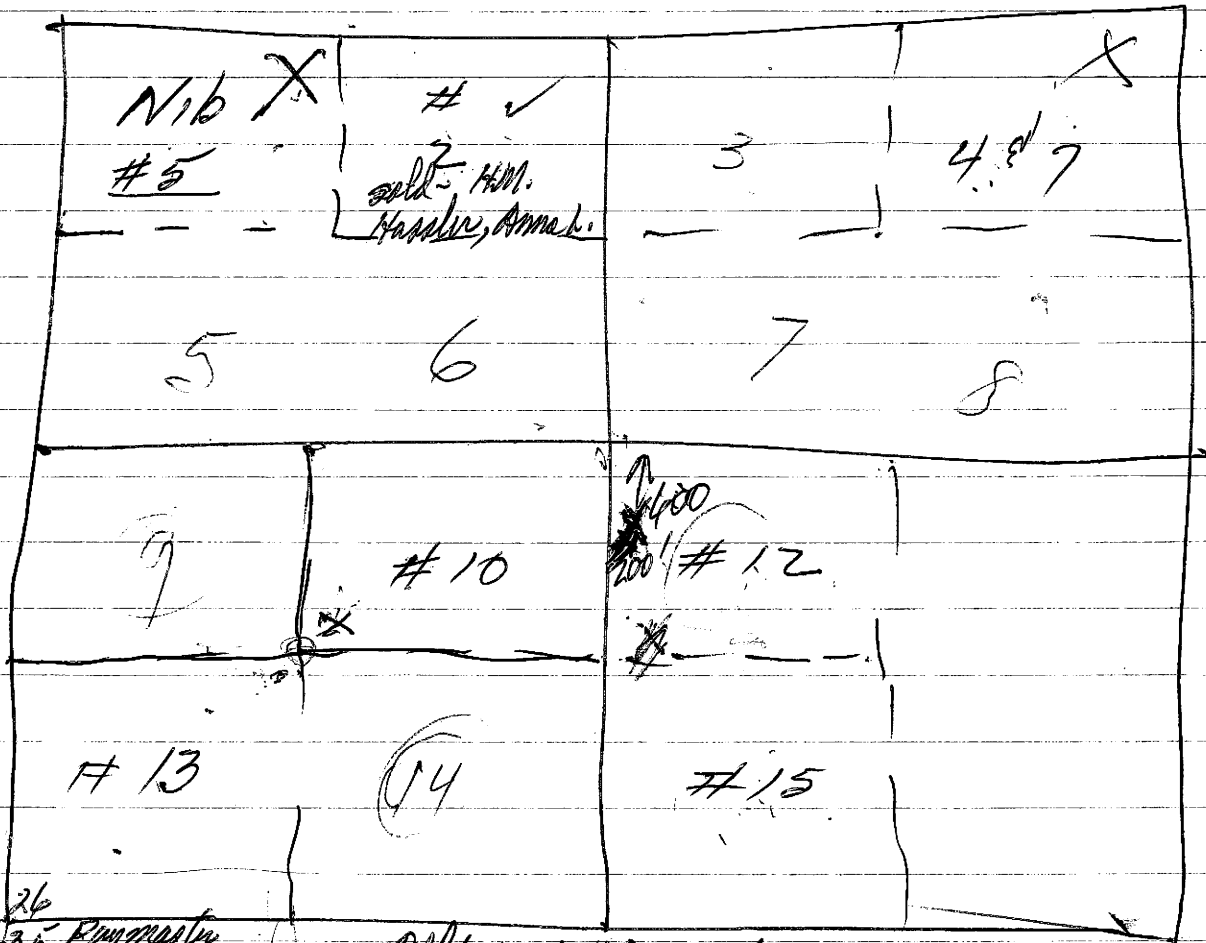 Nib X
#5
# ✓
2
sold - H.M.
Hassler, Anna L.
3
X
4
7
5
6
7
8
9
#10
X
400
200'
#12
#13
14
#15
26
25